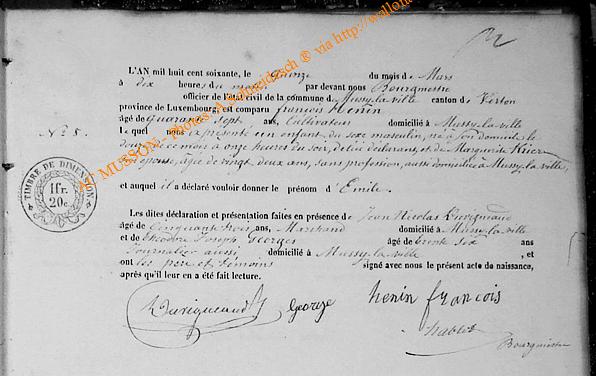 L'AN mil huit cent soixante, le quinze du mois de Mars
à dix heures du matin par devant nous Bourgmestre
officier de l'état civil de la commune de Mussy-la-ville canton de Virton
province de Luxembourg, est comparu françois Henin
âgé de Quarante sept ans, Cultivateur domicilié à Mussy-la-ville
Lequel nous a présenté un enfant du sexe masculin, né à son domicile le
douze de ce mois à onze heures du soir, de lui déclarant, et de Marguerite
épouse, âgée de vingt deux ans, sans profession, aussi domiciliée à Mussy-la-ville,
et auquel il a déclaré vouloir donner le prénom d'Emile.
Les dites déclaration et présentation faites en présence de Jean Nicolas
âgé de Cinquante trois ans, Marchand domicilié à Mussy-la-ville
et de Théodore Joseph Georges âgé de trente six ans
Journalier aussi domicilié à Mussy-la-ville, et
ont les père et témoins signé avec nous le présent acte de naissance,
après qu'leur en a été fait lecture.
N° 8.
TIMBRE DE DIMENSION
1fr.
20c
George
henin françois
Bourgmestre
MUSSON - photos A. Schneidesch @ via http://wallon